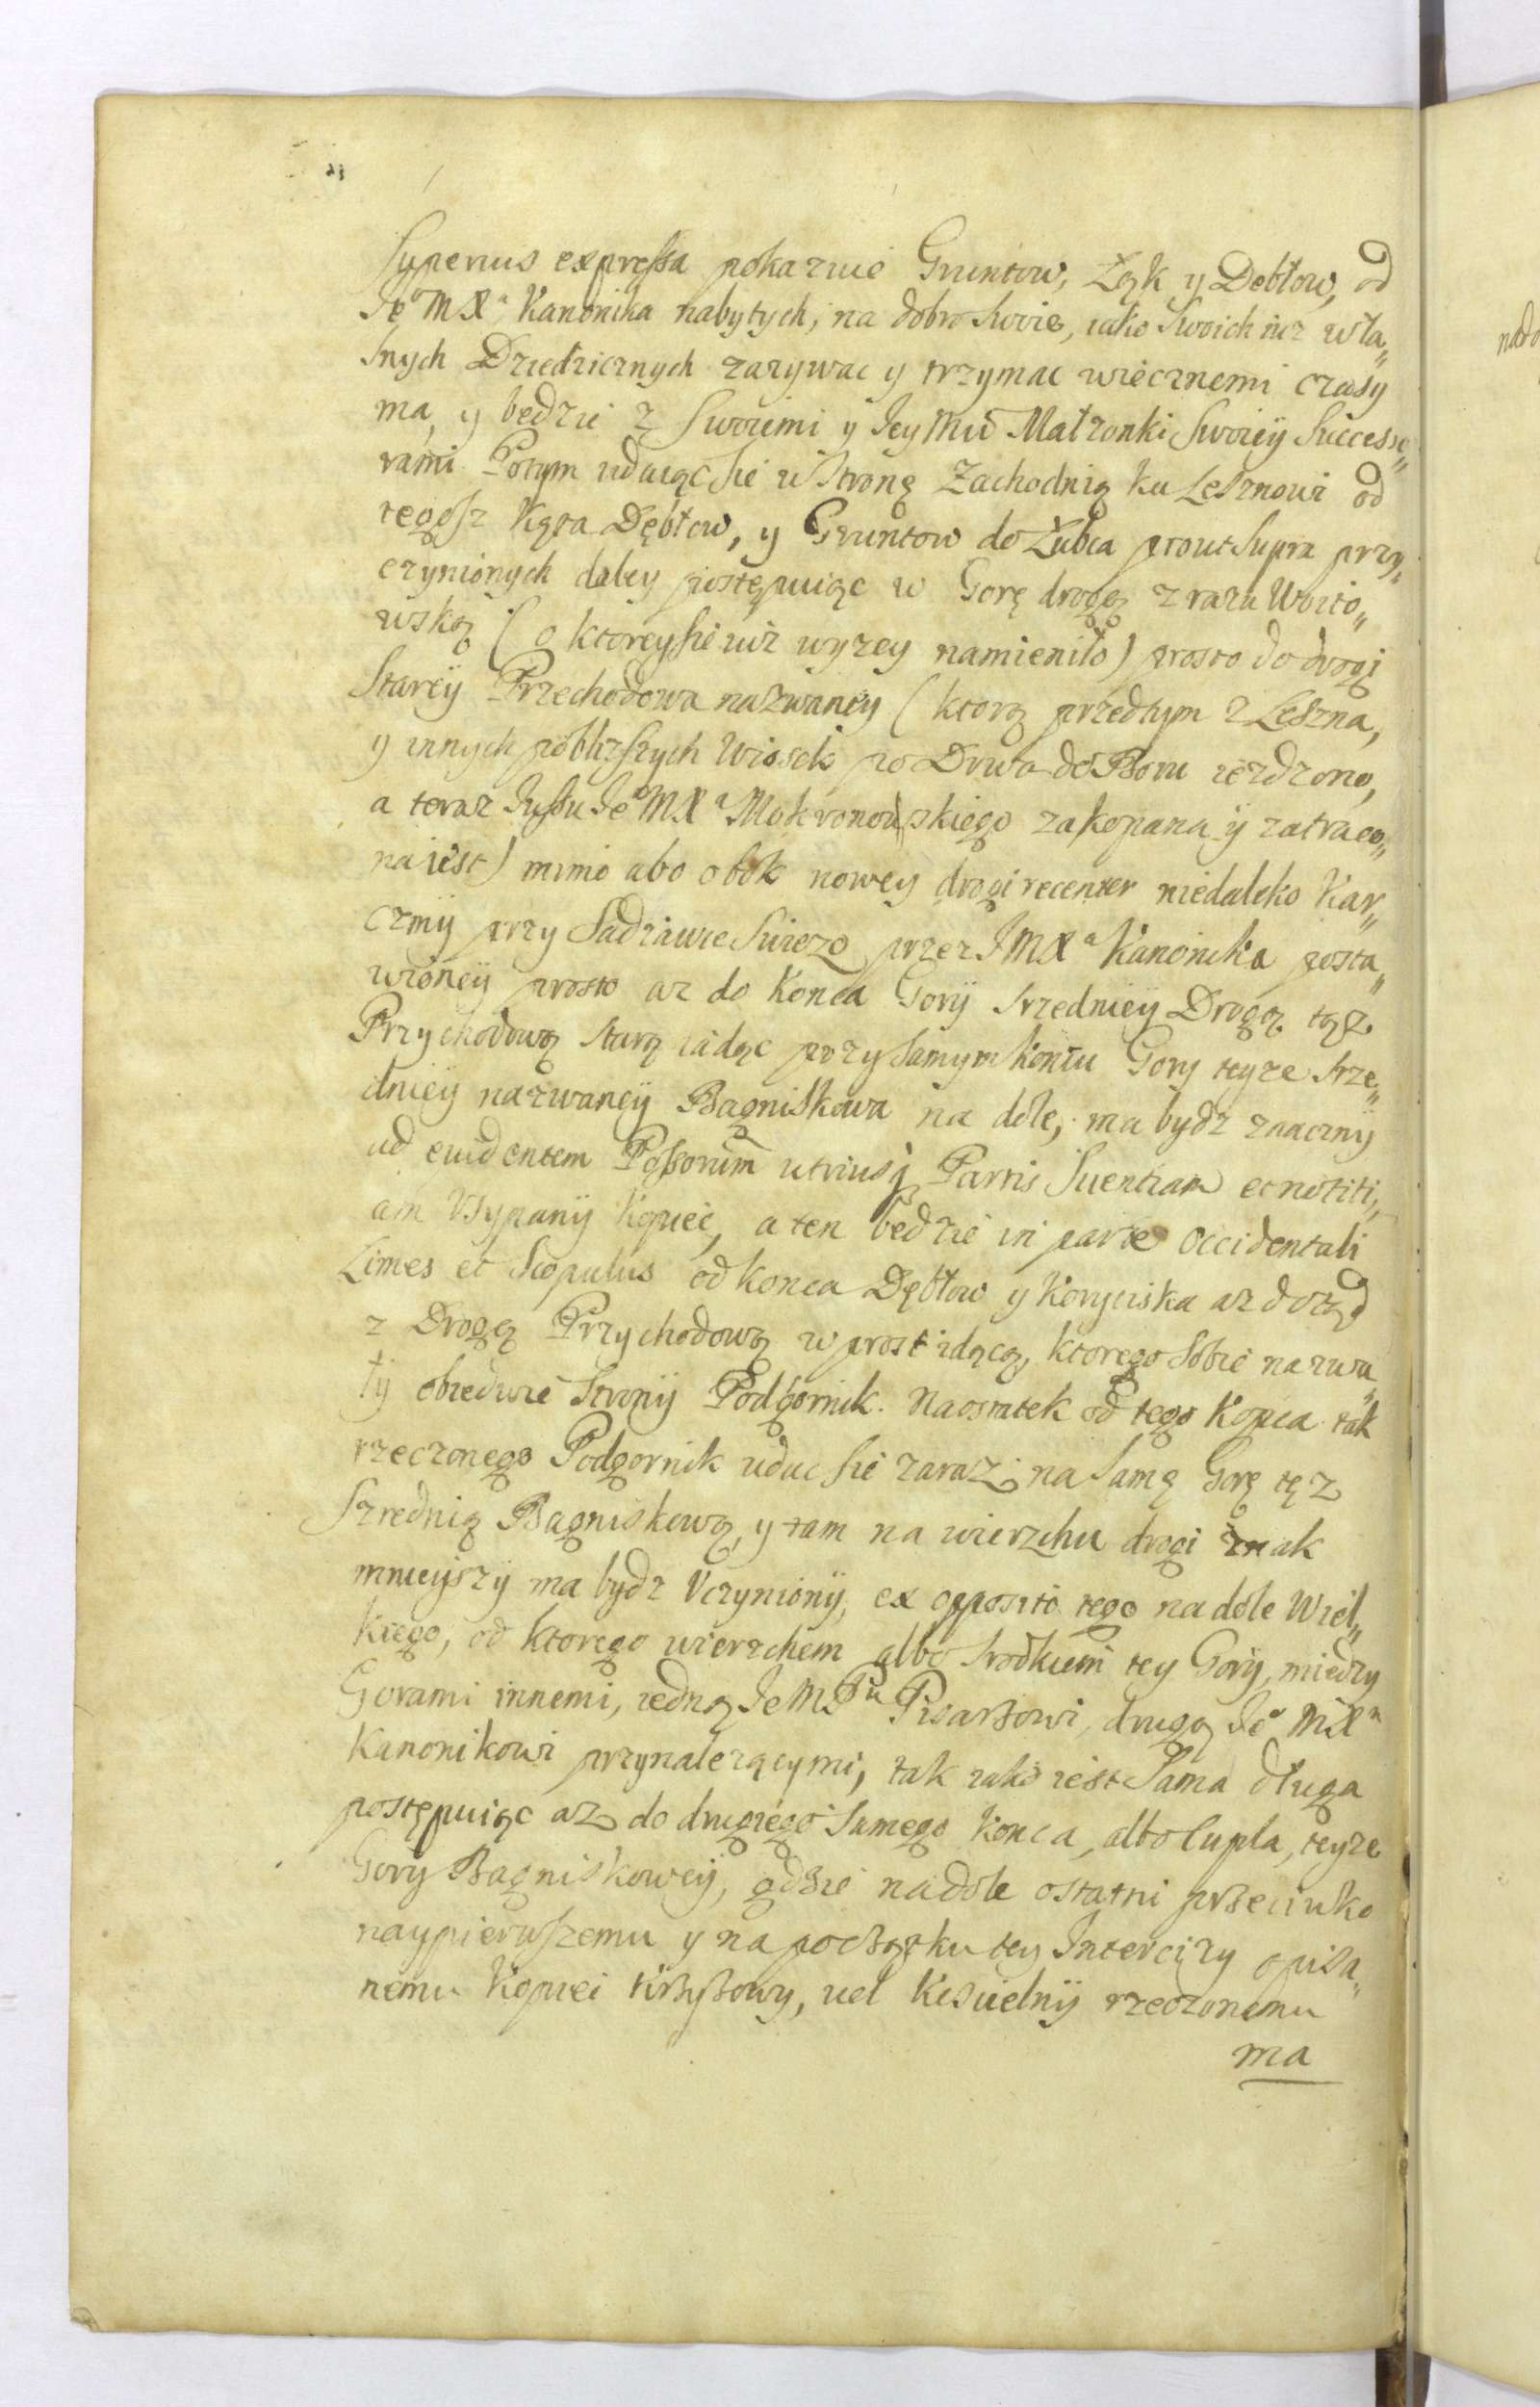 Superius expressa pokazuie Gruntow, Łąk y Dębłow, od
Je° M X^a Kanonika nabytych, na dobro Swoie, iako Swoich iuz wła„
snych Dziedzicznych zazywac y trzymac wiecznemi czasy
ma, y bedzie z Swoiemi y Jey Mci Małzonki Swoiey Successo„
rami. Potym udaiąc sie w Stronę Zachodnią ku Lesznowi od
tegosz Kąta Dębłow, y Gruntow do Łubca prout Supra przy„
czynionych daley postępuiąc w Gorę drogą zrazu Woito„
wską (o ktorey sie iuz wyzey namieniło) prosto do drogi
Starey Przechodowa nazwaney (ktorą przedtym z Leszna,
y innych poblizszych Wiosek po Drwa do Boru iezdzono,
a teraz Jussu Je° M X^a Mokronowskiego zakopana y zatraco„
na iest) mimo abo obok nowey drogi recenter niedaleko Kar„
czmy przy Sadzawce Swiezo przez J M X^a Kanonika posta„
wioney prosto az do Konca Gory Srzedniey Drogą tąz
Przychodową Starą iadąc przy samym Koncu Gory teyze Srze„
dniey nazwaney Bagniskowa na dole, ma bydz znaczny
ad euidentem Possorum utriusq Partis Scientiam et notiti„
am Vsypany Kopiec, a ten bedzie in parte Occidentali
Limes et Scopulus od konca Dębłow y Koryciska az dotąd
z Drogą Przychodową wprost idącą, ktorego Sobie nazwa„
ły obiedwie Strony Podgornik. Naostatek od tego Kopca tak
rzeczonego Podgornik udac sie zaraz na Samą Gorę tęz
Srzednią Bagniskową, y tam na wierzchu drogi znak
mnieyszy ma bydz Vczyniony, ex opposito tego na dole Wiel„
kiego, od ktorego wierzchem albo Srodkiem tey Gory, miedzy
Gorami innemi, iedną Je M P^u Pisarzowi, drugą Je° M X^u
Kanonikowi przynalezącymi, tak iako iest Sama długa
postępuiąc az do drugiego Samego Konca, albo Cupla, teyze
Gory Bagniskowey, gdzie na dole ostatni przeciwko
naypierwszemu y na początku tey Intercizy opisa„
nemu Kopiec Krzyzowy, uel Kisielny rzeczonemu
ma